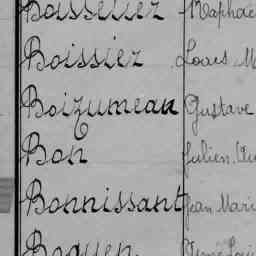 Boisselier Rapha
Boissiez Louis M
Boizumeau Gustave
Bon Julien, Au
Bonnissant Jean Mari
Boquen